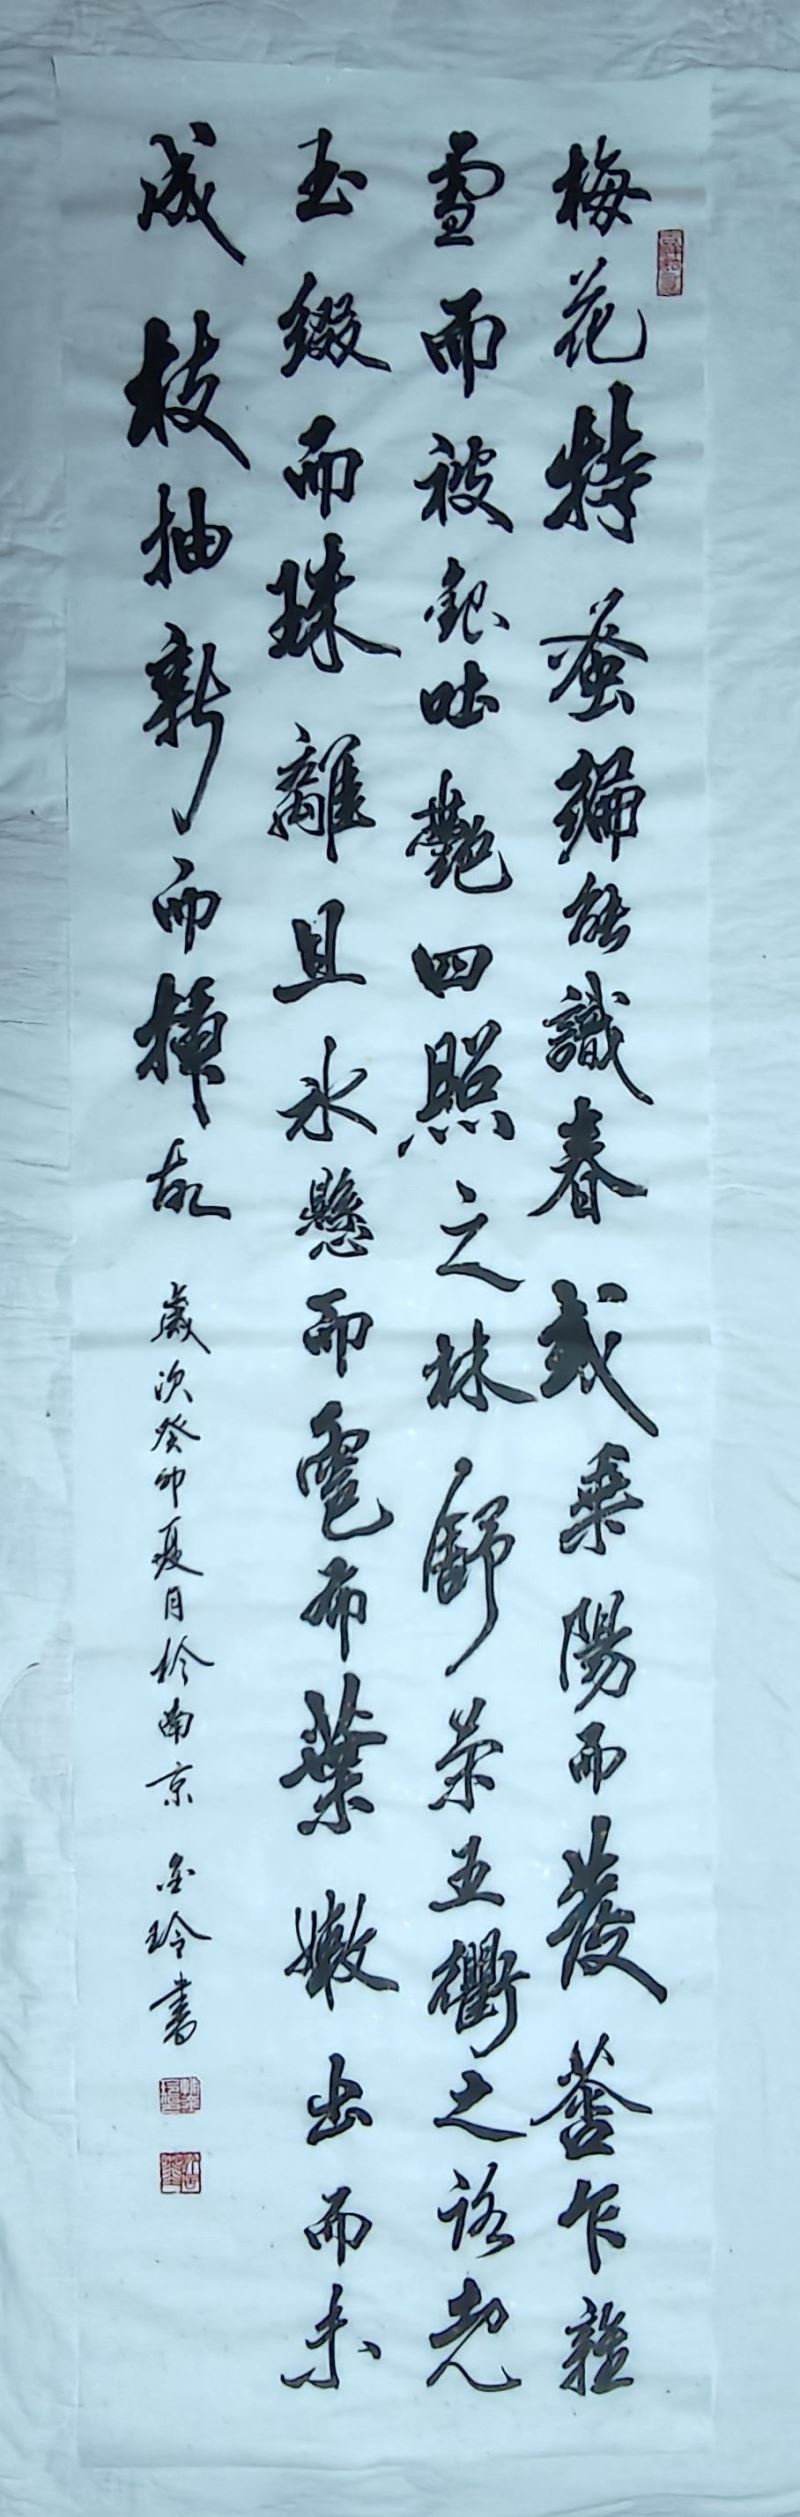 梅花特蚤編能識春或乗陽而發蕾乍雜
雪而被銀吐艷四照之林舒荣五衢之路既
玉綴而珠離且氷懸而雹布葉嫩出而未
成枝抽新而插故
歲次癸卯夏月於南京 金玲書